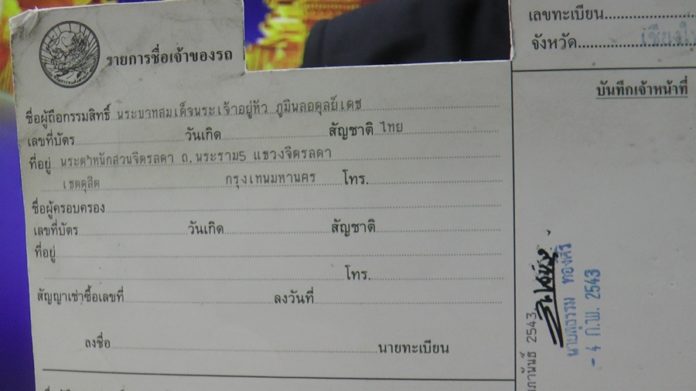 รายการชื่อเจ้าของรถ
ชื่อผู้ถือกรรมสิทธิ์ พระบาทสมเด็จพระเจ้าอยู่หัว ภูมิพลอดุลย์เดช
เลขที่บัตร วันเกิด สัญชาติ ไทย
ที่อยู่ พระตำหนักสวนจิตรลดา ถ.พระราม5 แขวงจิตรลดา
เขตดุสิต กรุงเทพมหานคร โทร.
ชื่อผู้ครอบครอง
เลขที่บัตร วันเกิด สัญชาติ
ที่อยู่
โทร.
สัญญาเช่าซื้อเลขที่ ลงวันที่
ลงชื่อ นายทะเบียน
เลขทะเบียน
จังหวัด
บันทึกเจ้าหน้าที่
2543
- 4 ก.พ. 2543